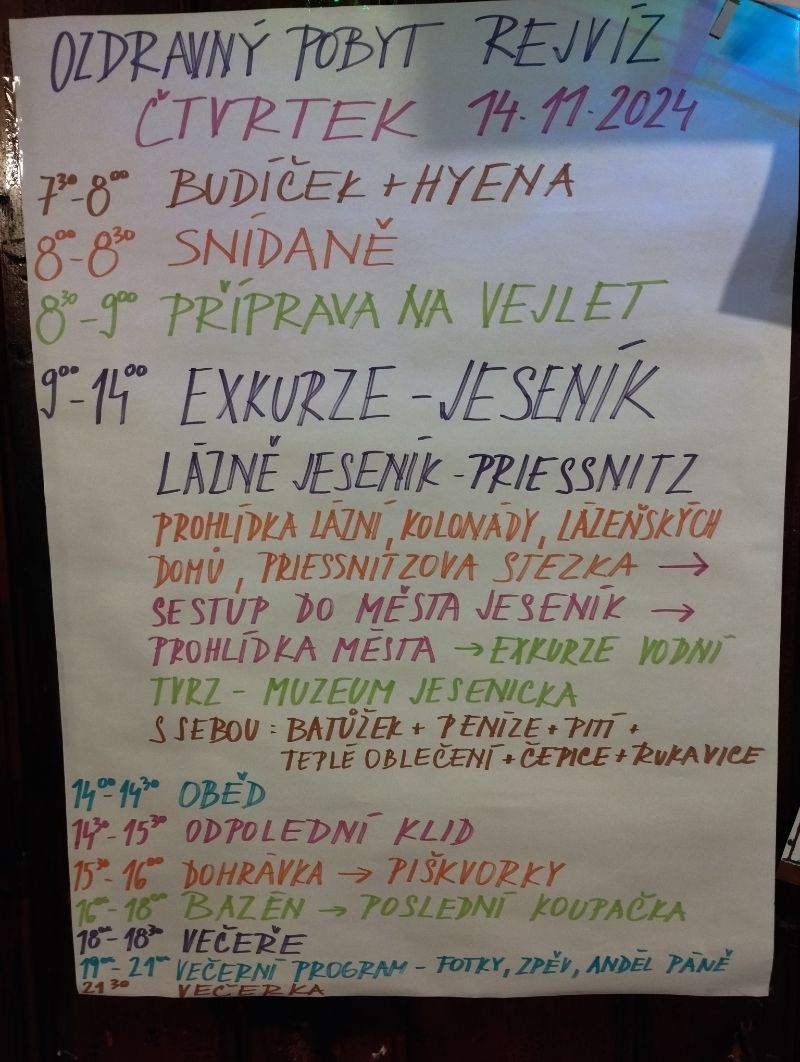 OZDRAVNÝ POBYT REJVÍZ
ČTVRTEK 14.11.2024
7³⁰-8⁰⁰ BUDÍČEK + HYENA
8⁰⁰-8³⁰ SNÍDANĚ
8³⁰-9⁰⁰ PŘÍPRAVA NA VEJLET
9⁰⁰-14⁰⁰ EXKURZE - JESENÍK
LÁZNĚ JESENÍK - PRIESSNITZ
PROHLÍDKA LÁZNÍ, KOLONÁDY, LÁZEŇSKÝCH
DOMŮ, PRIESSNITZOVA STEZKA →
SESTUP DO MĚSTA JESENÍK →
PROHLÍDKA MĚSTA → EXKURZE VODNÍ
TVRZ - MUZEUM JESENICKA
S SEBOU : BATŮŽEK + PENÍZE + PITÍ +
TEPLÉ OBLEČENÍ + ČEPICE + RUKAVICE
14⁰⁰-14³⁰ OBĚD
14³⁰-15³⁰ ODPOLEDNÍ KLID
15³⁰-16⁰⁰ DOHRÁVKA → PIŠKVORKY
16⁰⁰-18⁰⁰ BAZÉN → POSLEDNÍ KOUPAČKA
18⁰⁰-18³⁰ VEČEŘE
19⁰⁰-21⁰⁰ VEČERNÍ PROGRAM - FOTKY, ZPĚV, ANDĚL PÁNĚ
21³⁰ VEČERKA